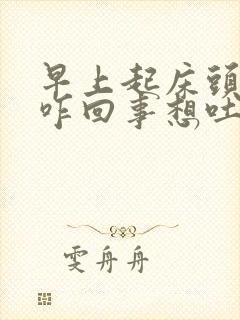 早上起床頭
咋回事想吐
雯舟舟